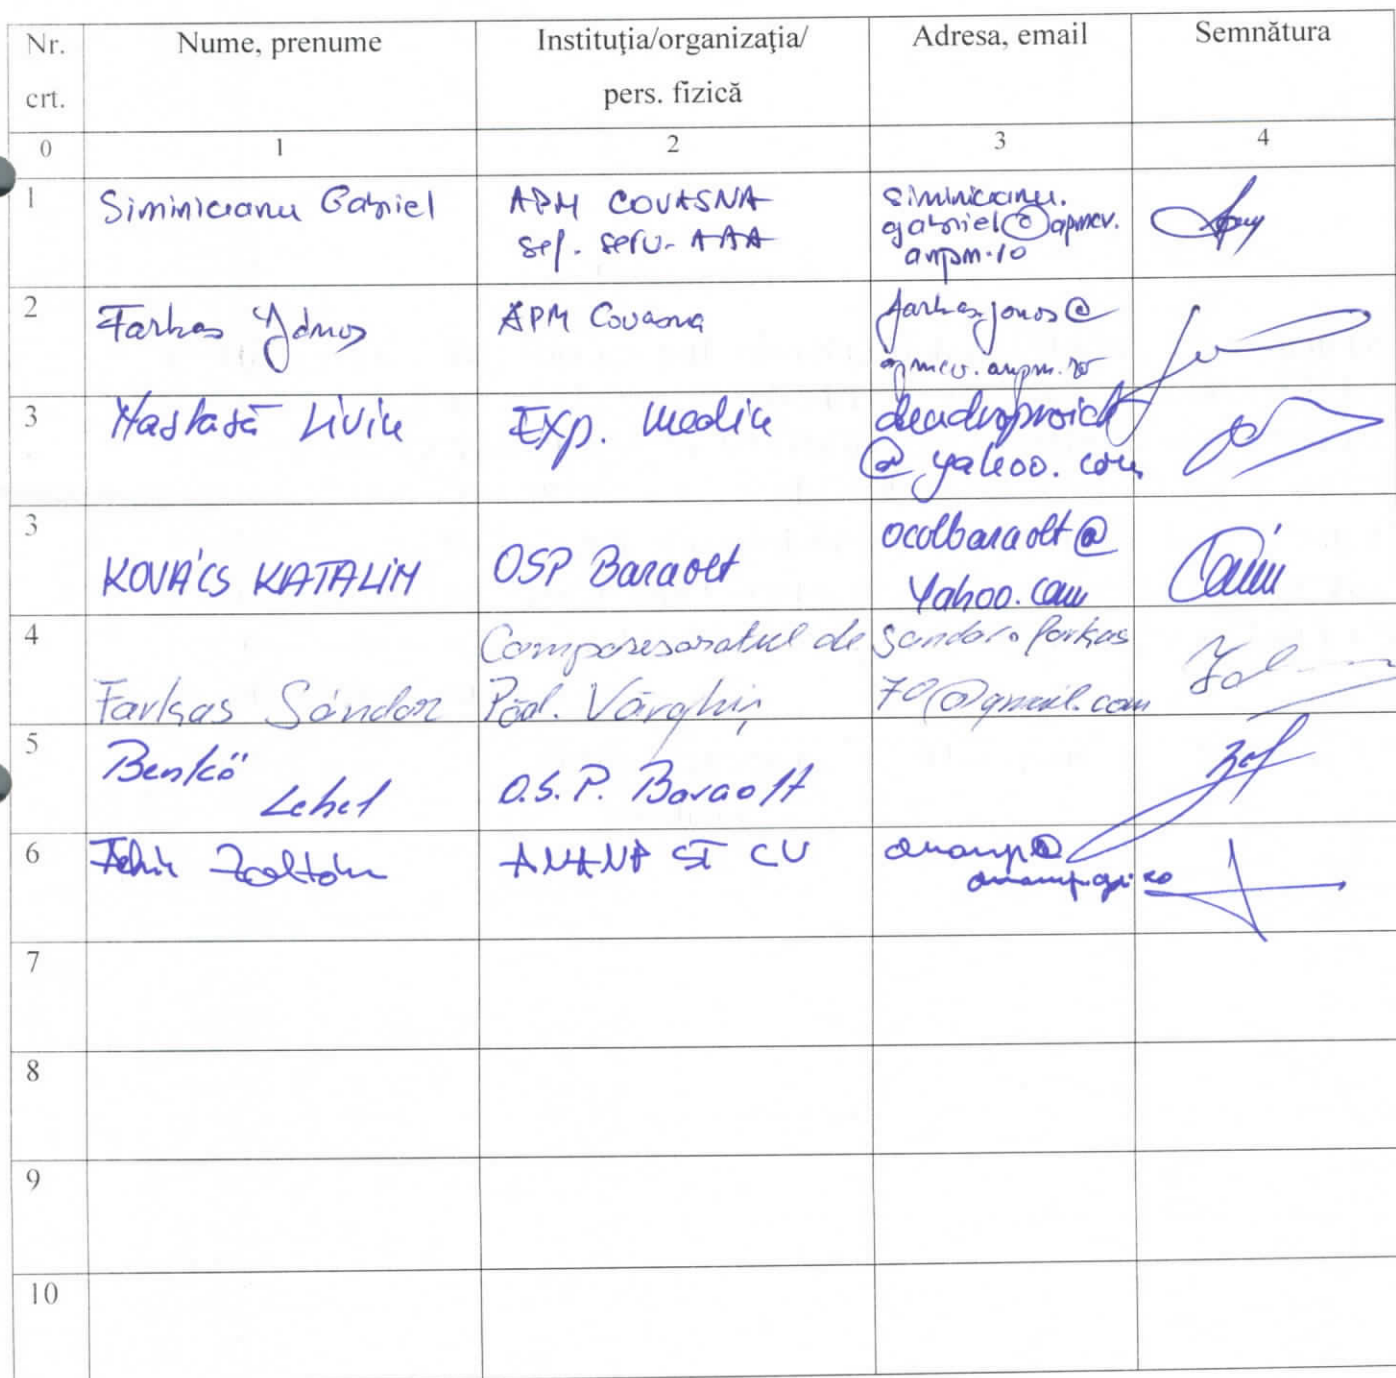 Nr. crt.
Nume, prenume
Instituţia/organizaţia/
pers. fizică
Adresa, email
Semnătura
0 1 2 3 4
1 Siminiceanu Gabriel
APM COVASNA
şef. serv. AAA
siminiceanu.
gabriel@apmcv.
anpm.ro
2 Farkas János
APM Covasna
farkas.janos@
apmcv.anpm.ro
3
Liviu
Exp. mediu
@yahoo.com
3
KOVÁCS KATALIN
OSP Baraolt
ocolbaraolt@
yahoo.com
4
Farkas Sándor
Composesoratul de
Păd. Vârghiş
sandor.farkas
70@gmail.com
5 Benkő
Lehel
O.S.P. Baraolt
6
Zoltán
ANANP ST CV
7
8
9
10